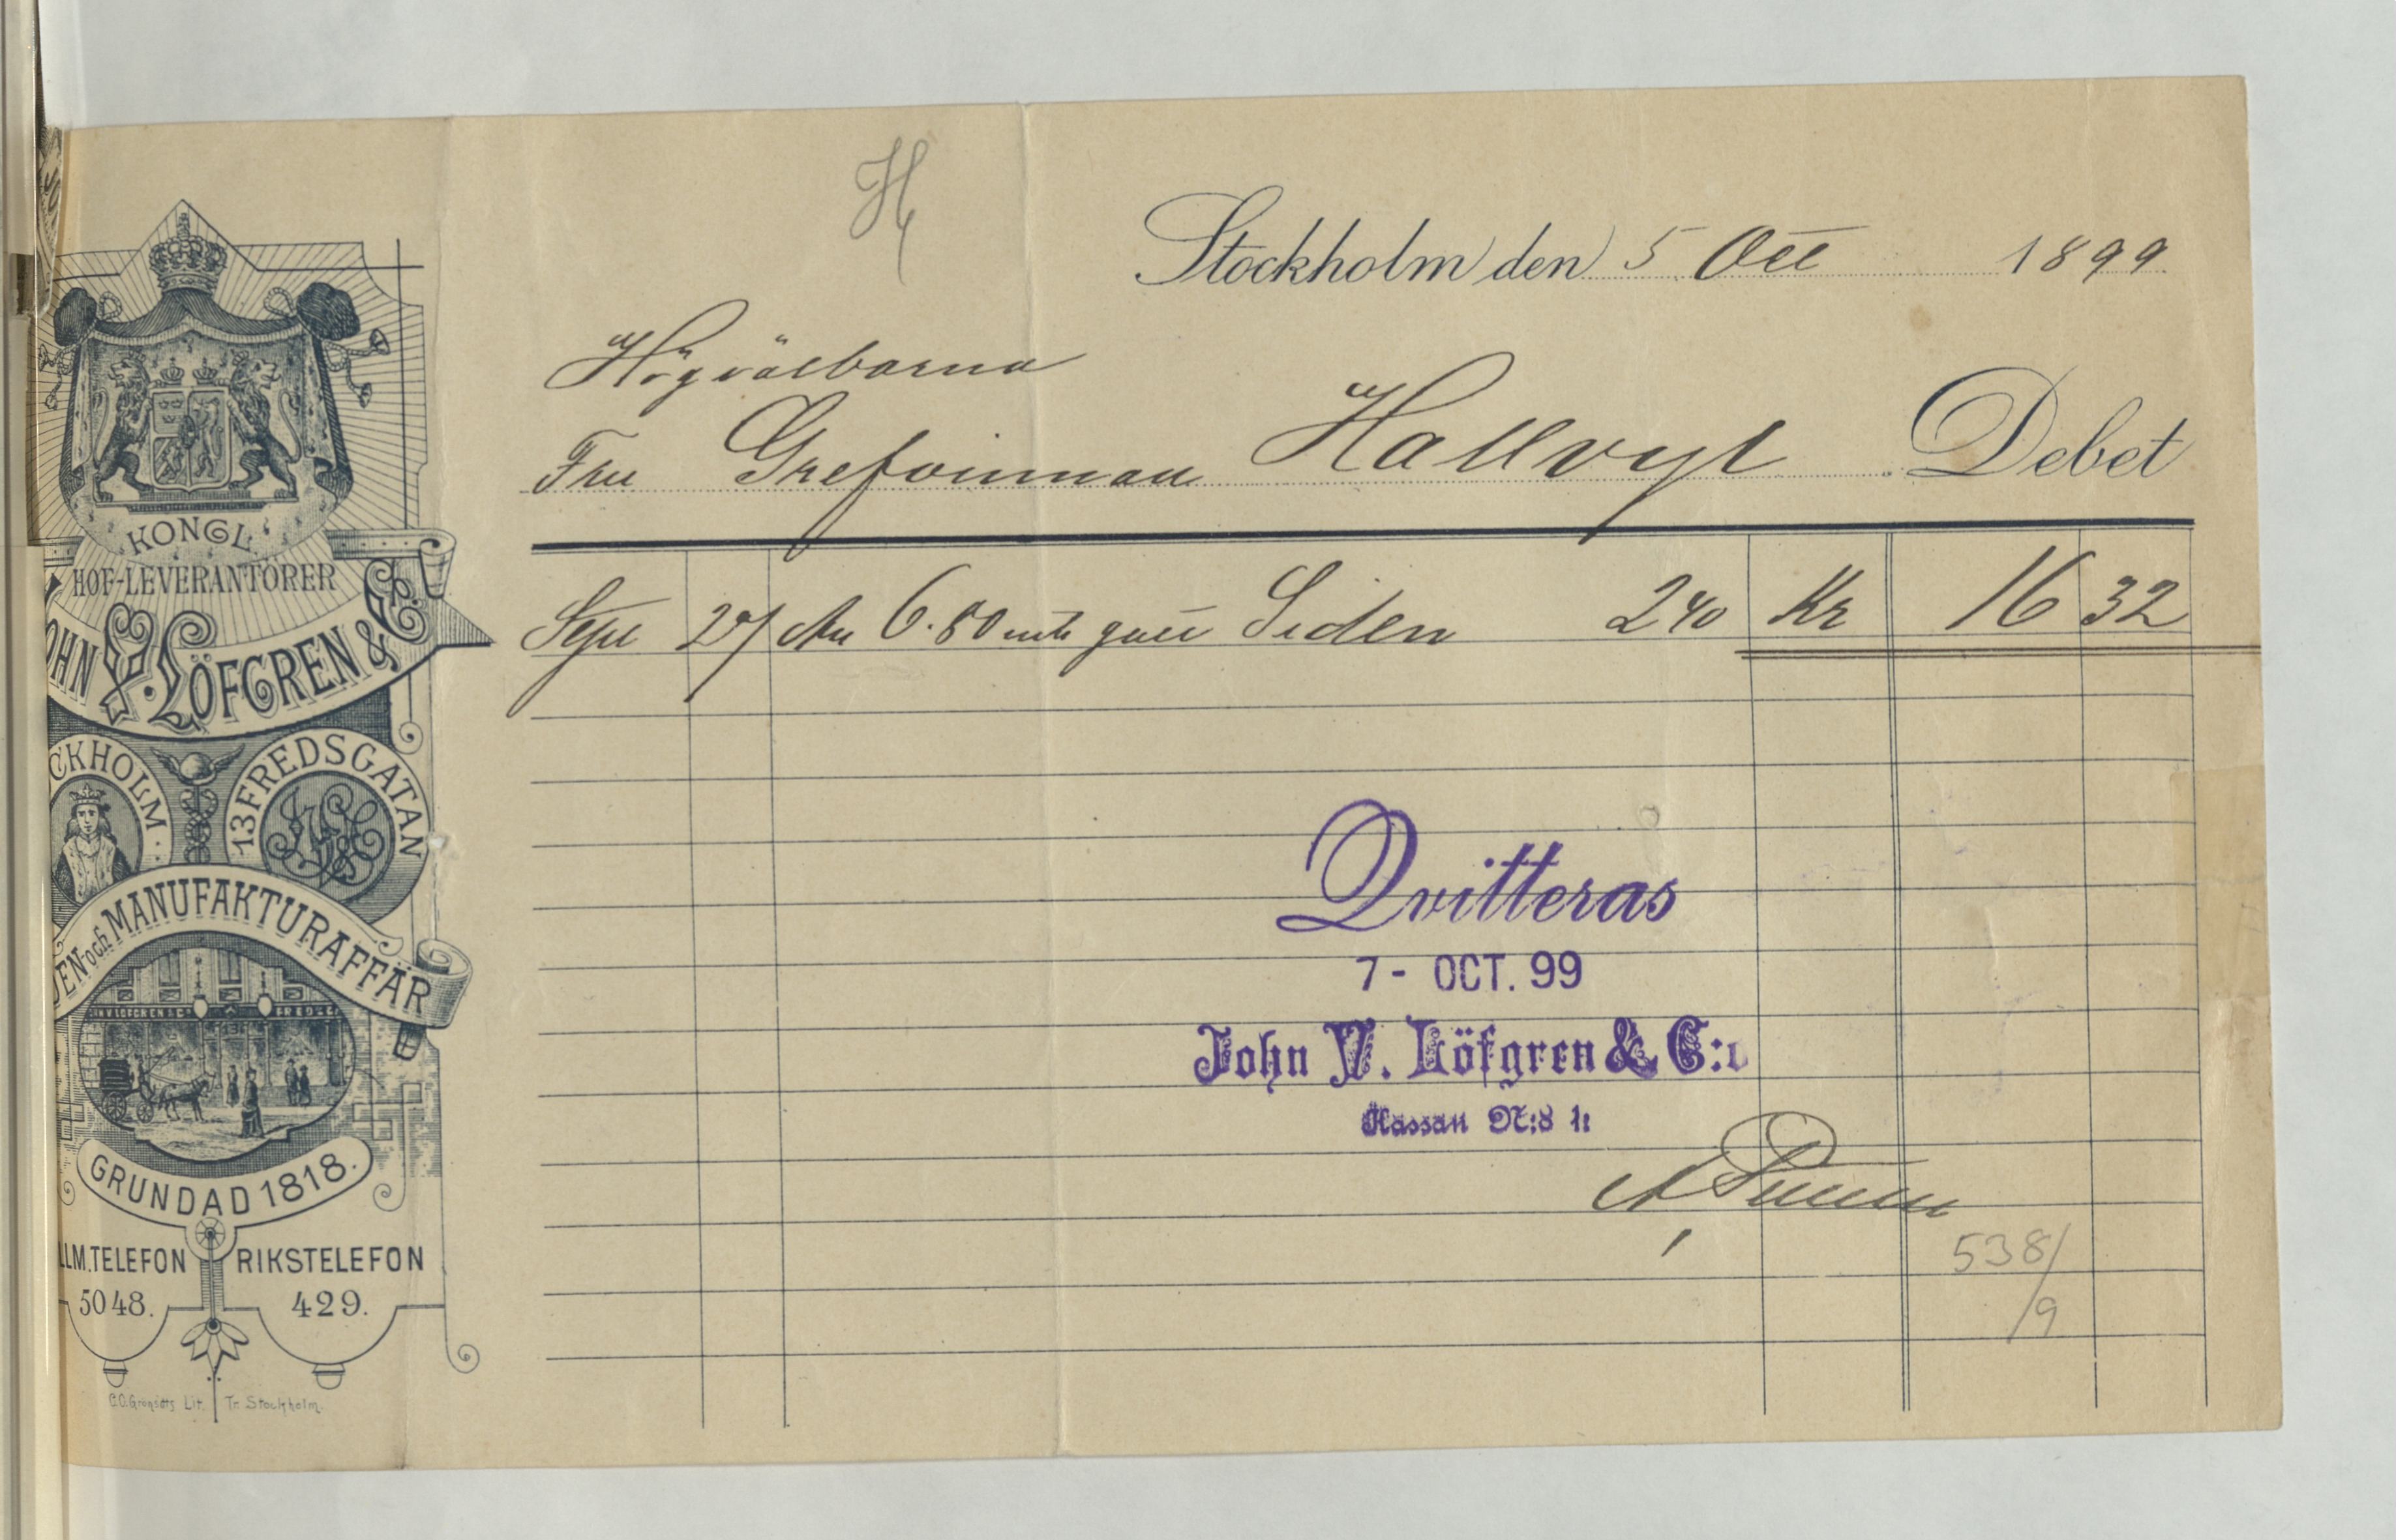 H
Stockholm den 5 Oct 1899
Högvälborna
Fru Grefvinnan Hallwyl Debet
Sept 27 6.80 mtr Siden 240 Kr 16 32
KONGL.
HOF-LEVERANTÖRER
OHN V. LÖFGREN & C:o
CKHOLM. 13 FREDSGATAN
DEN och MANUFAKTURAFFÄR
GRUNDAD 1818.
LLM. TELEFON RIKSTELEFON
5048. 429.
Lit. Tr. Stockholm.
Qvitteras
7 - OCT. 99
John V. Löfgren & C:o
Kassan
538/
/9